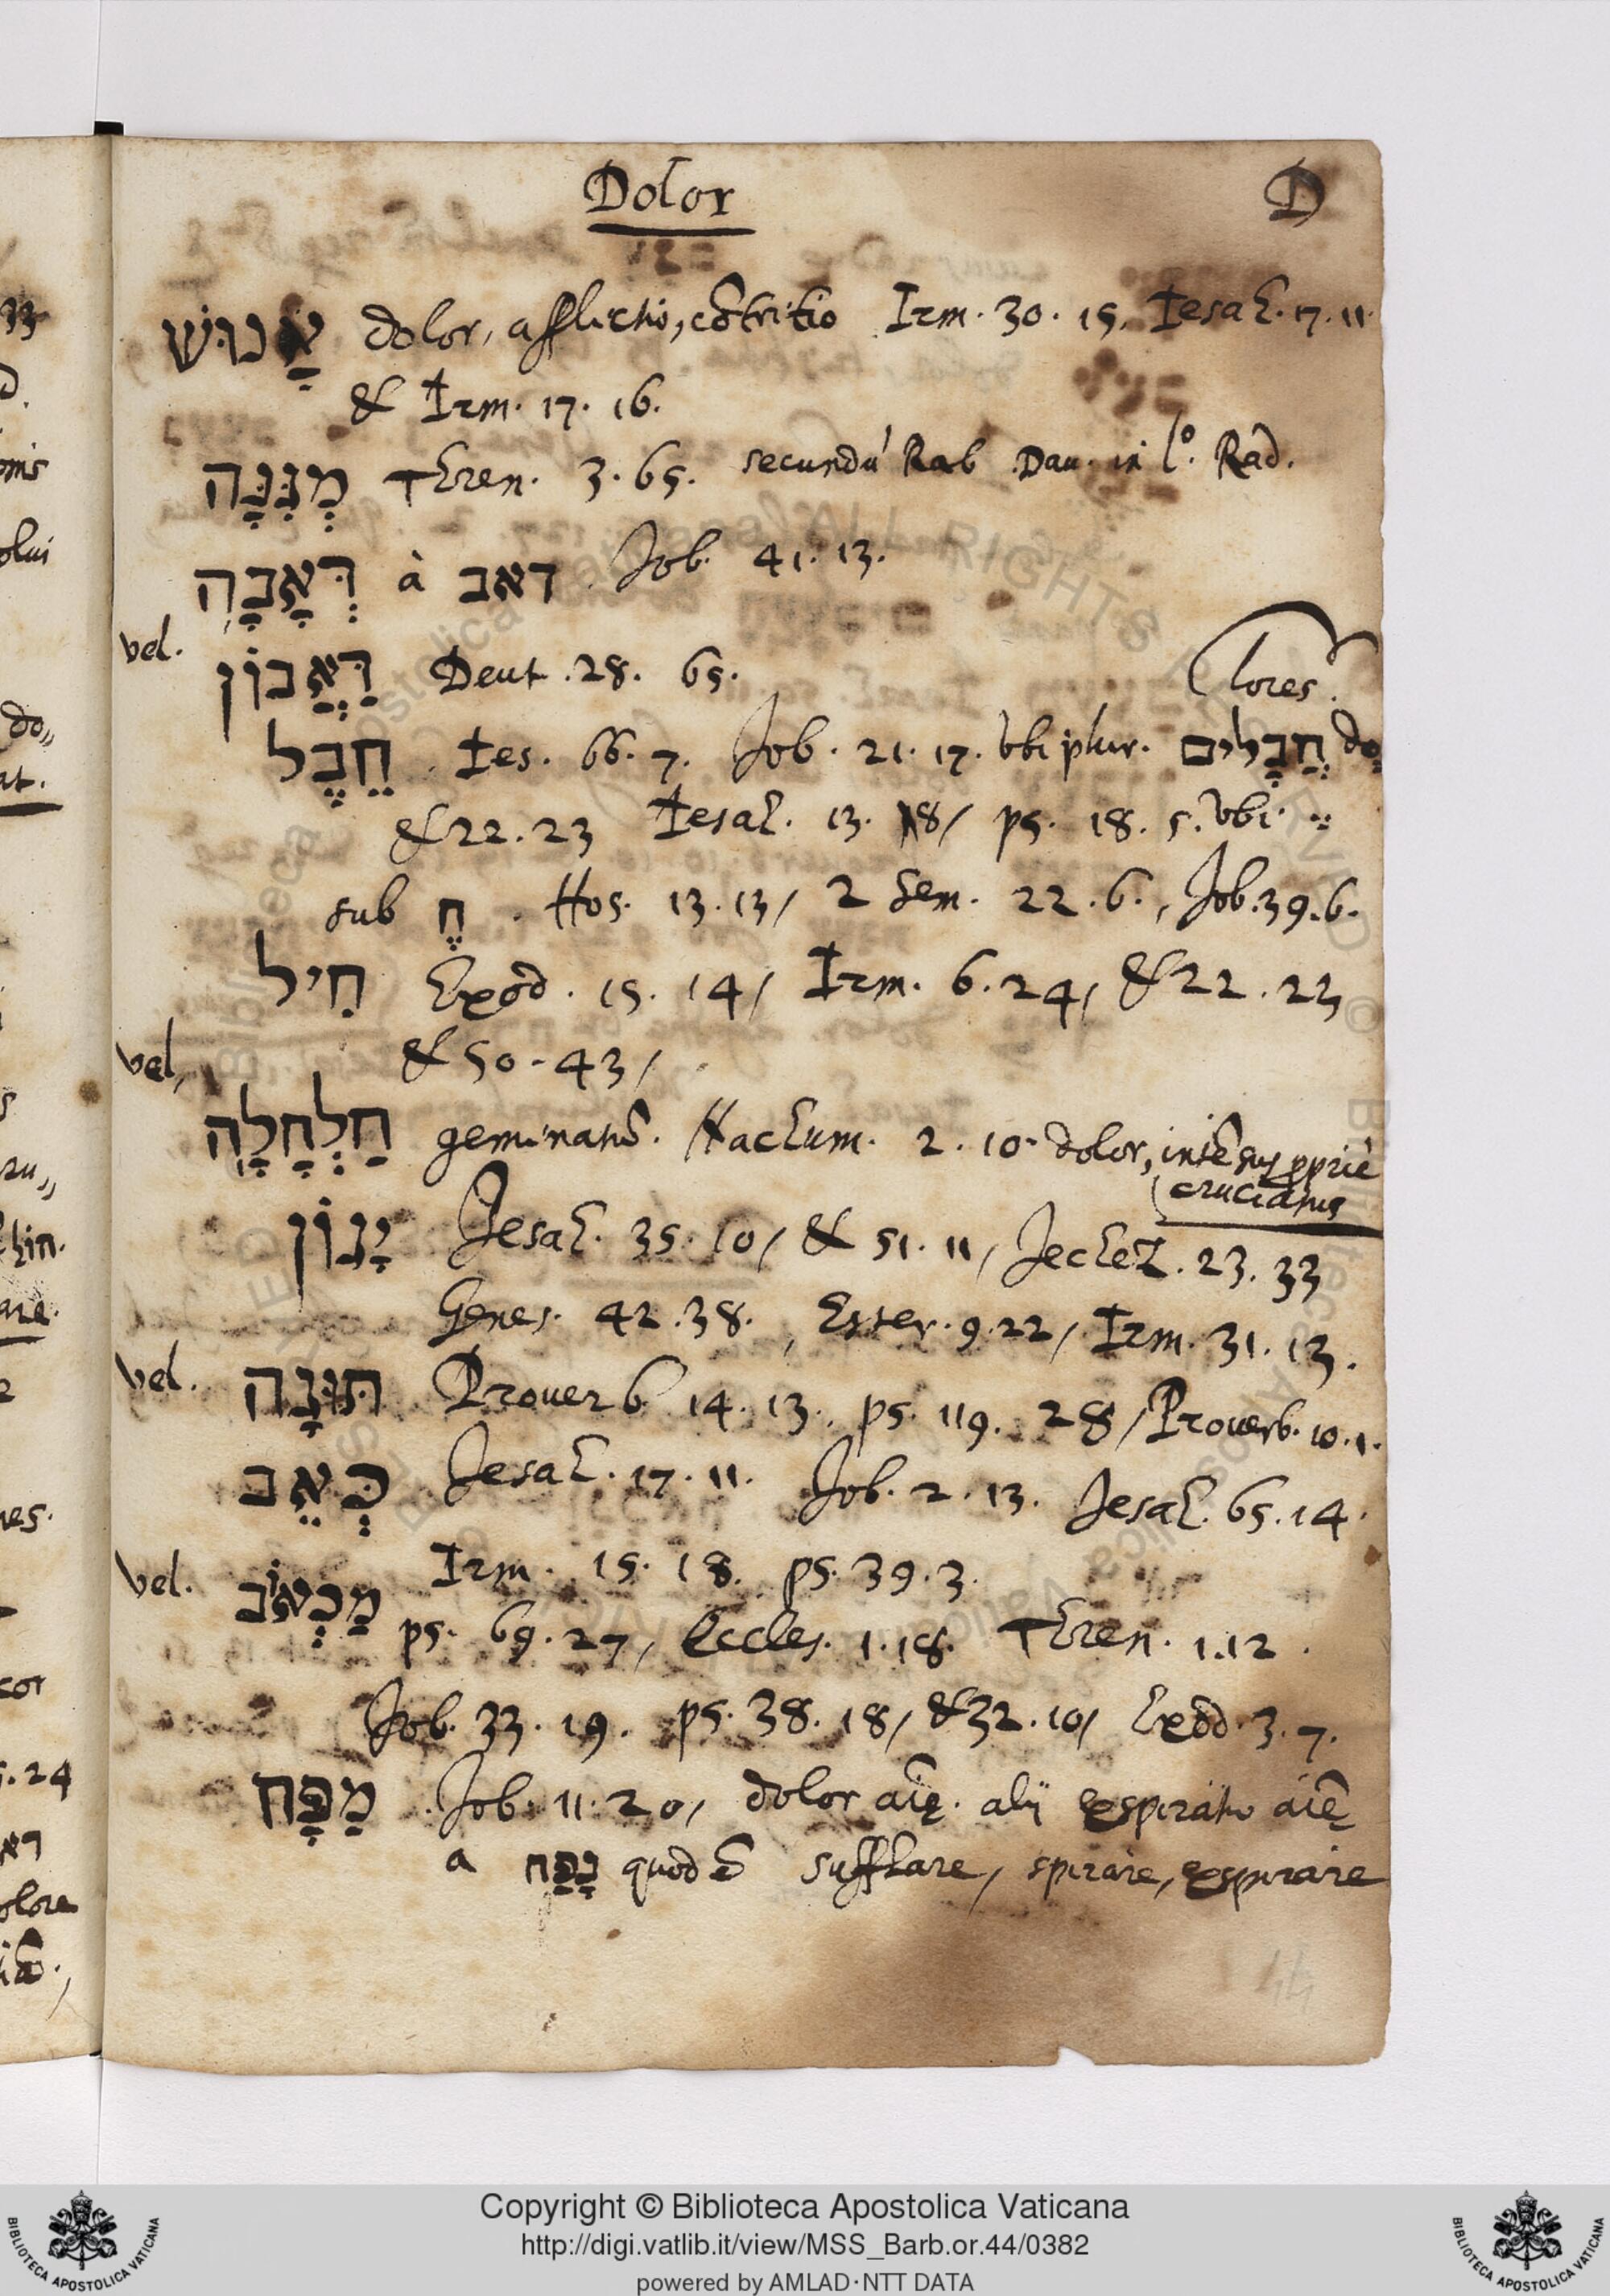 Dolor
D
אָנוּשׁ dolor, afflictio, cōtritio Irm. 30. 15. Iesaћ. 17. 11.
& Irm. 17. 16.
מְגִנָּה Tћren. 3. 65. secundū Rab Dau. in lº. Rad.
דְּאָבָה à דאב Job. 41. 13.
vel. דַּאֲבוֹן Deut. 28. 65.
lores.
חֵבֶל Ies. 66. 7. Job. 21. 17. vbi plur. חֲבָלִים do„
& 22. 23 Iesaћ. 13. 8/ ps. 18. 5. vbi ֶ
sub חֶ . Hos. 13. 13/ 2 Sem. 22. 6., Job. 39. 6.
חִיל Exod. 15. 14/ Irm. 6. 24/ & 22. 23
vel, & 50. 43/
חַלְחָלָה geminatū. Nacћum. 2. 10. dolor, intēsus ppriè
cruciatus
יָגוֹן Jesaћ. 35. 10/ & 51. 11/ Jecћez. 23. 33
Genes. 42. 38., Ester. 9. 22/ Irm. 31. 13.
vel. תּוּגָה Prouerb 14. 13. ps. 119. 28/ Prouerb. 10. 1.
כְּאֵב Jesaћ. 17. 11. Job. 2. 13. Jesaћ. 65. 14.
Irm. 15. 18. ps. 39. 3.
vel. מַכְאוֹב
ps. 69. 27/ Eccles. 1. 18. Tћren. 1. 12.
Job. 33. 19. ps. 38. 18/ & 32. 10/ Exod. 3. 7.
מַפָּח Job. 11. 20/ dolor aīę. alij expiratio aīę
a נָפַח quod ē sufflare, spirare, expirare
44
Copyright © Biblioteca Apostolica Vaticana
http://digi.vatlib.it/view/MSS_Barb.or.44/0382
powered by AMLAD·NTT DATA